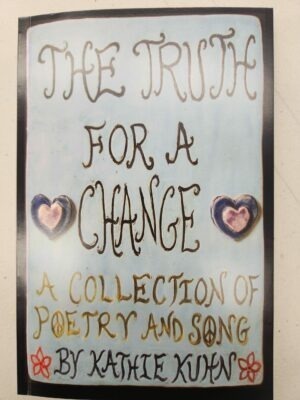 THE TRUTH
FOR A
CHANGE
A COLLECTION OF
POETRY AND SONG
BY KATHIE KUHN